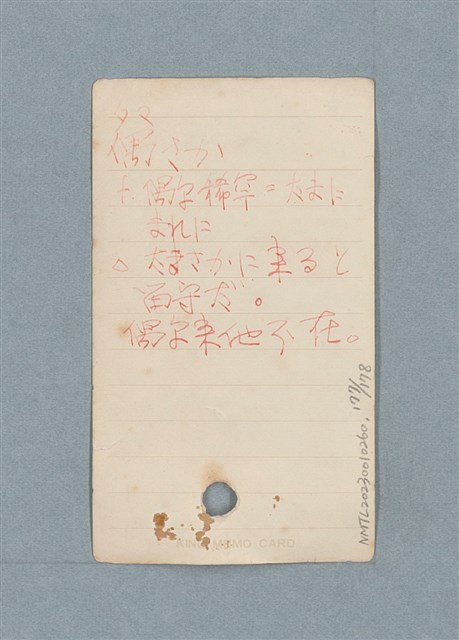 タマ
偶さか
偶尔稀罕=太まに
まれに
△ 太まさかに来ると
留守だ。
偶尔来他不在。
NMTL20230010260, 177/178
KING MEMO CARD